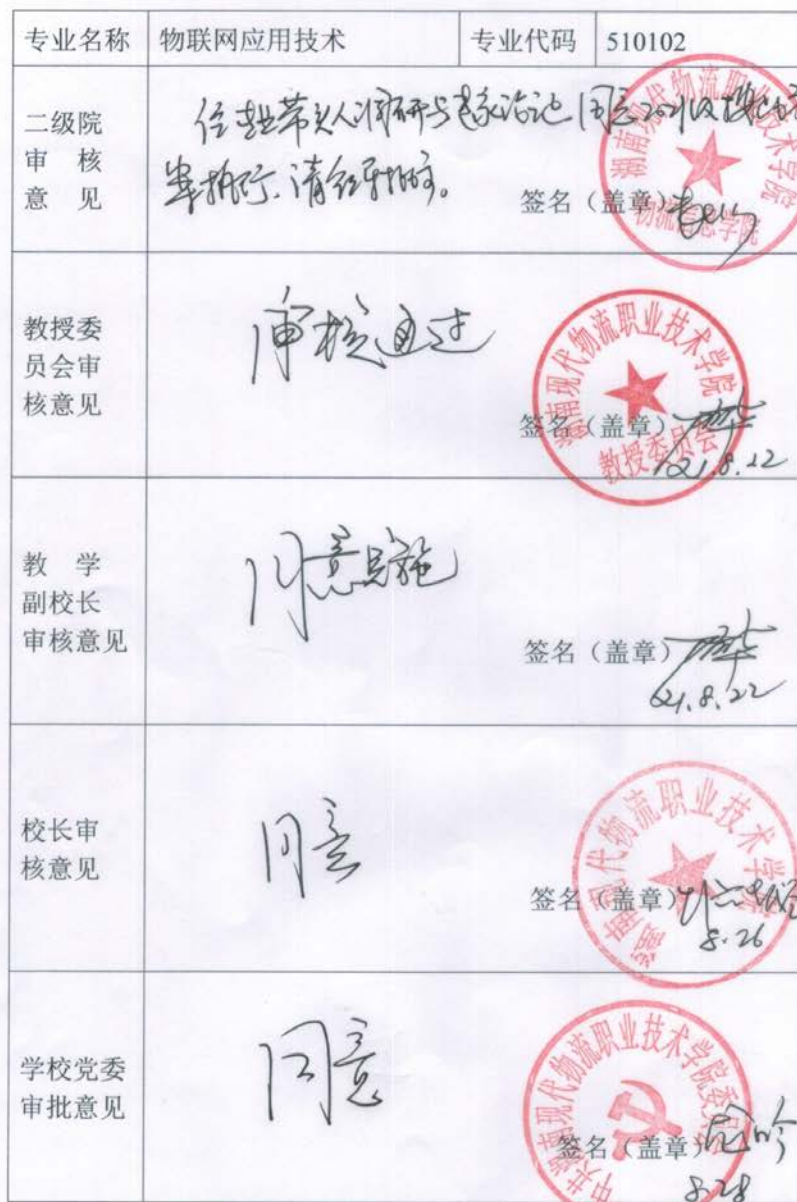 专业名称 物联网应用技术 专业代码 510102
二级院
审 核
意 见
同意2021级
签名（盖章）
湖南现代物流职业技术学院
物流信息学院
教授委
员会审
核意见
审核通过
签名（盖章）
湖南现代物流职业技术学院
教授委员会
2021.8.22
教 学
副校长
审核意见
同意实施
签名（盖章）
2021.8.22
校长审
核意见
同意
签名（盖章）
湖南现代物流职业技术学院
8.26
学校党委
审批意见
同意
签名（盖章）
中共湖南现代物流职业技术学院委员会
8.28